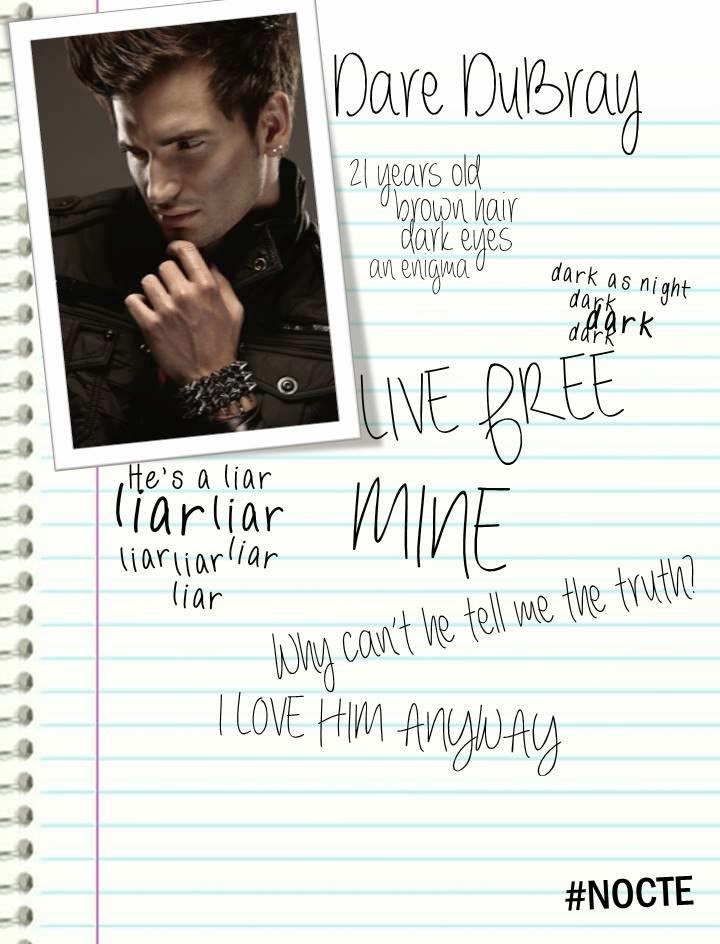 Dare DuBray
21 years old
brown hair
dark eyes
an enigma
dark as night
dark
dark
dark
LIVE FREE
He's a liar
liar liar
liar liar liar
liar
MINE
Why can't he tell me the truth?
I LOVE HIM ANYWAY
#NOCTE